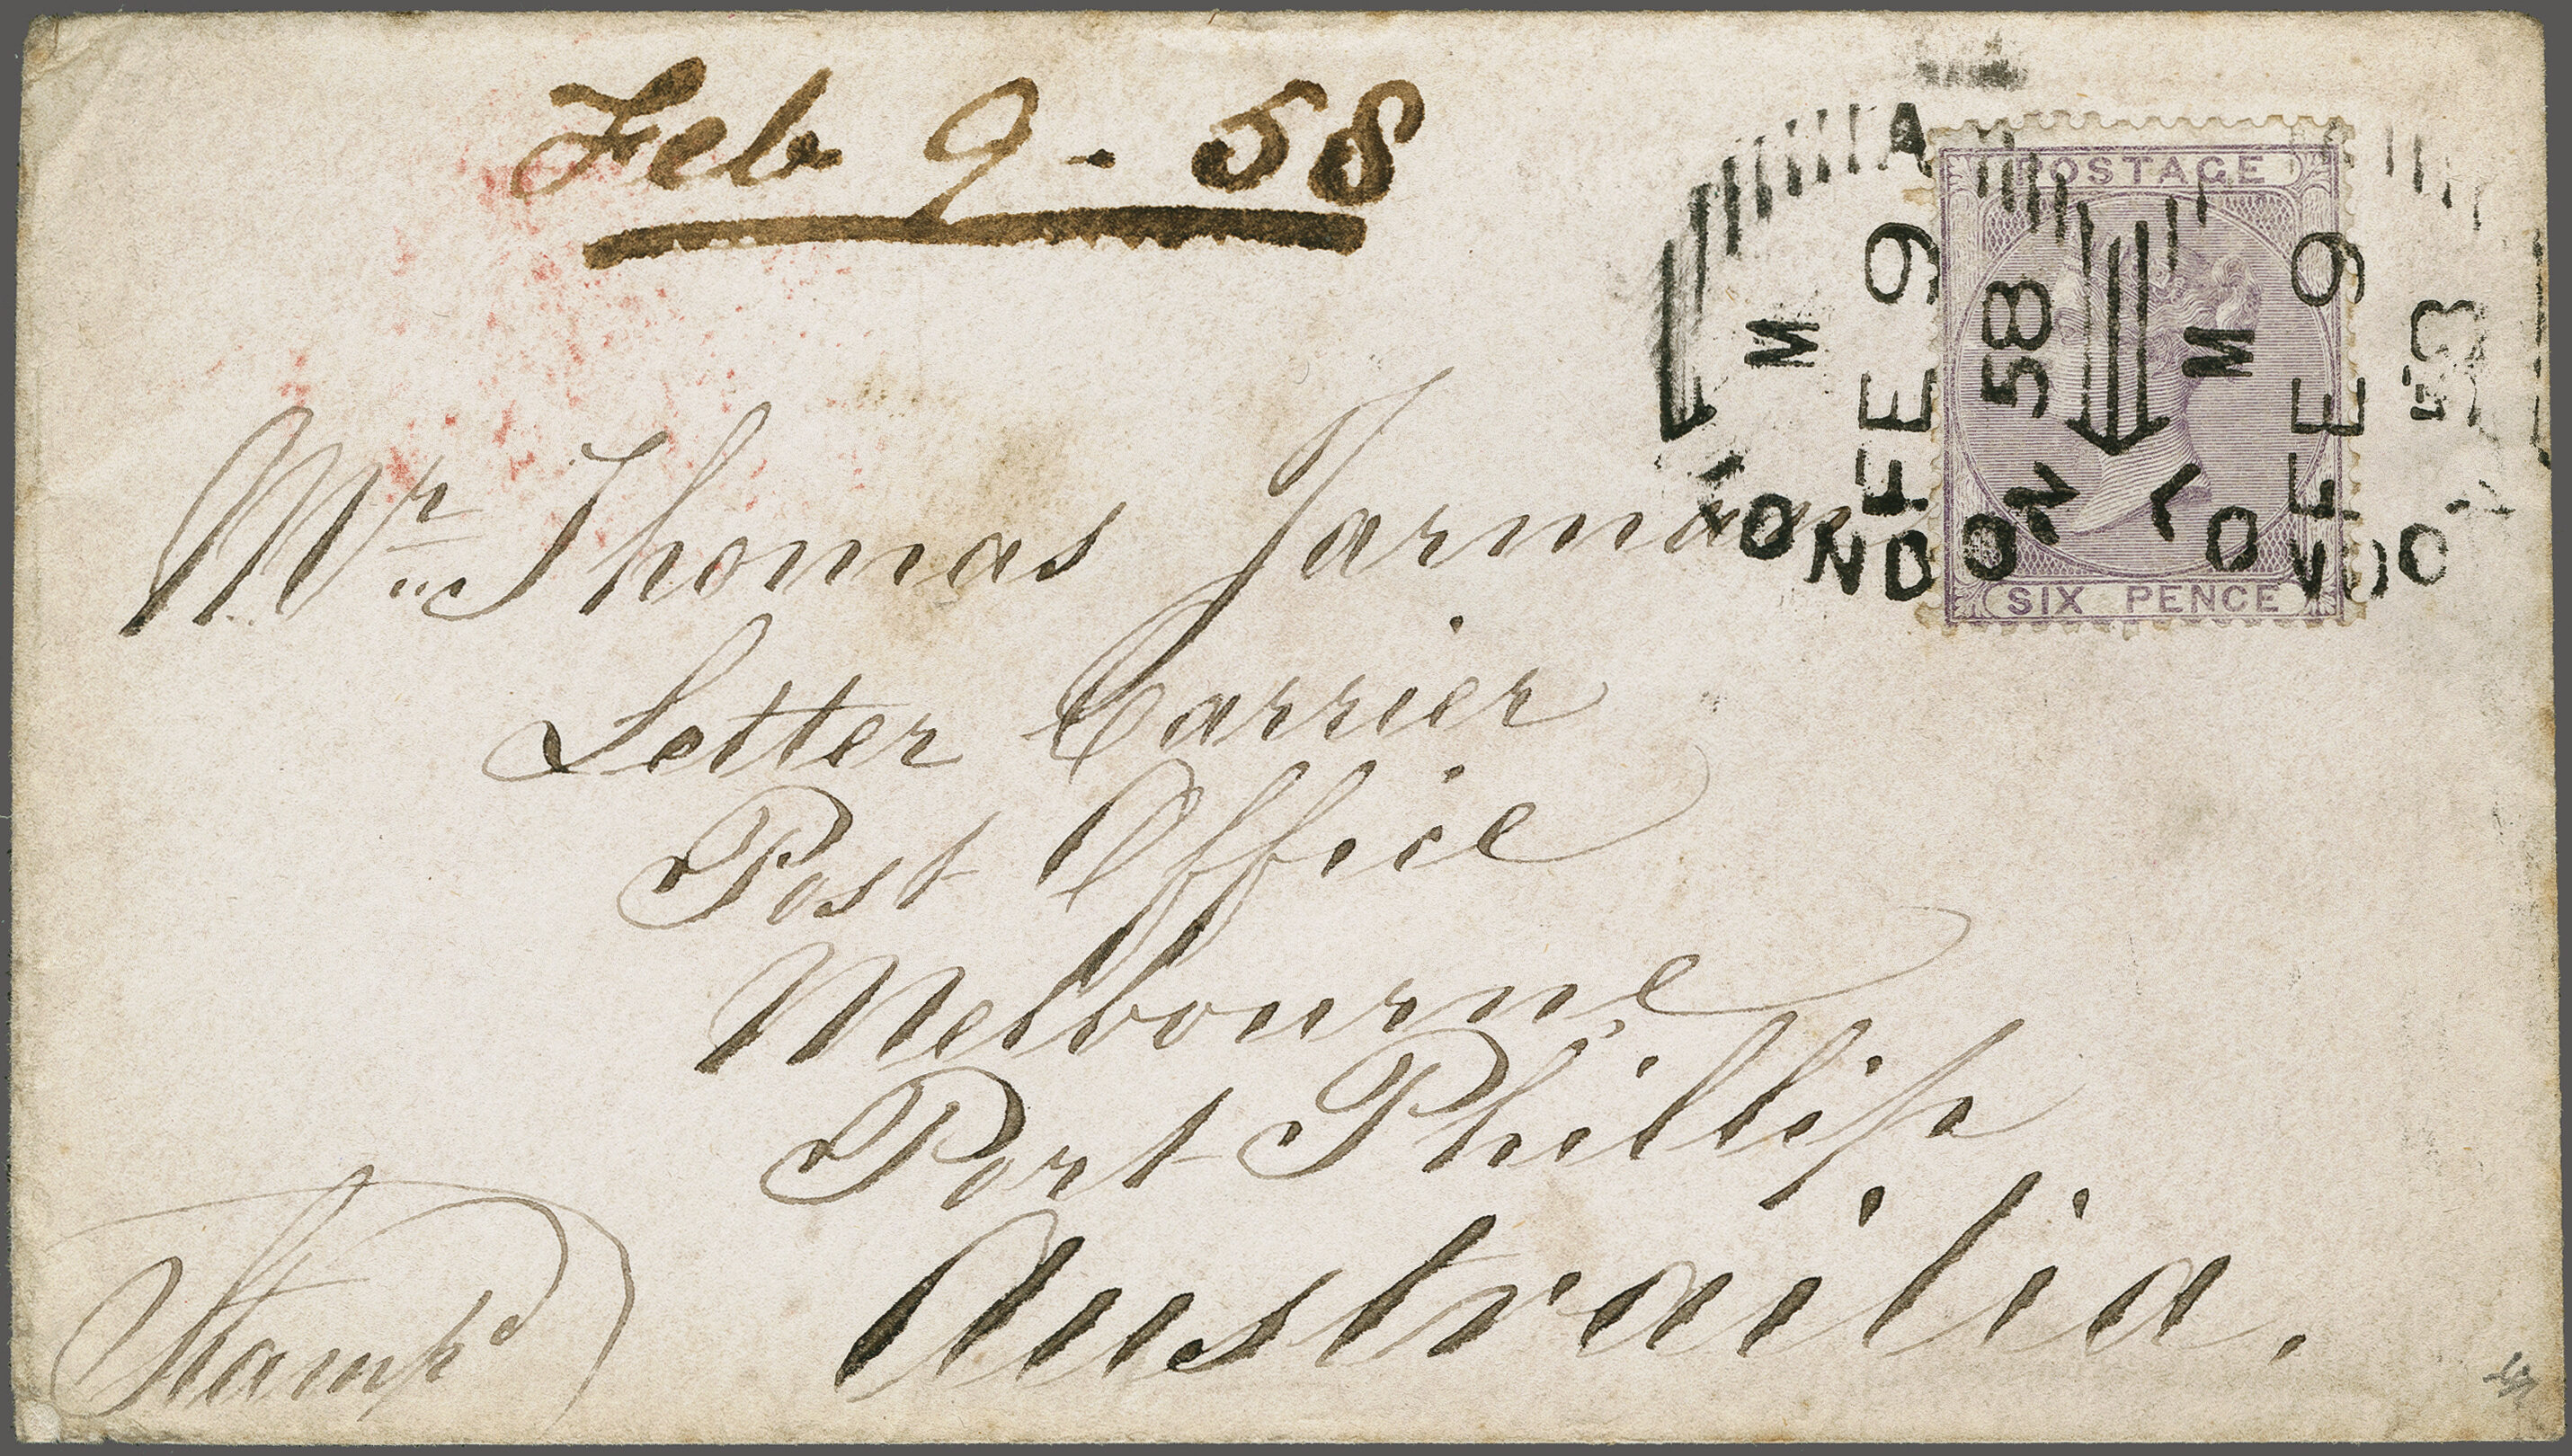 Feb 9 - 58
A
POSTAGE
M
FE 9
58
LONDON
M
FE 9
58
SIX PENCE
Mr Thomas Jarman
Letter Carrier
Post Office
Melbourne
Port Phillip
Austrailia.
Stampd